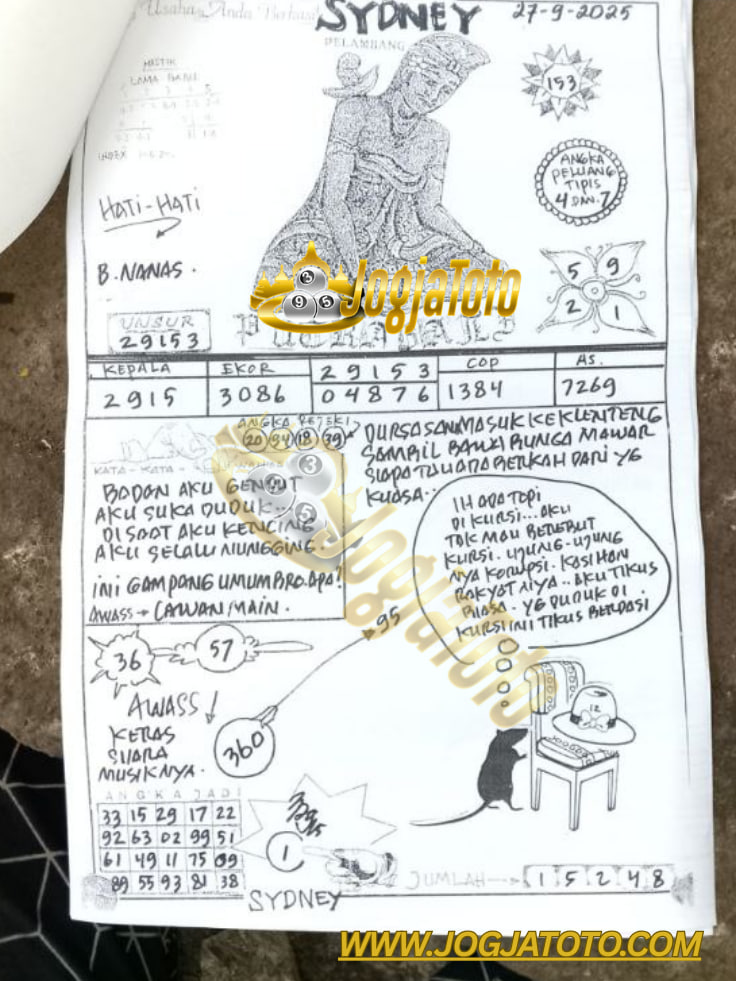 Usaha Anda Berhasil
SYDNEY
27-9-2025
PELAMBANG
MISTIK
LAMA BARU
INDEX
153
HATI-HATI
B. NANAS.
ANGKA
PELUANG
TIPIS
4 DAN 7
5 9
2 1
UNSUR
29153
JogjaToto
3
9 5
KEPALA EKOR 29153 COP AS.
2915 3086 04876 1384 7269
ANGKA REJEKI
20 94 18 39
DURSASANA MASUK KE KLENTENG
SAMBIL BAWA BUNGA MAWAR
KUASA..
KATA - KATA -
BADAN AKU GENDUT
AKU SUKA DUDUK..
DI SAAT AKU KENCING
AKU SELALU NUNGGING
INI GAMPANG UMUM BRO. APA?
AWASS → LAWAN/MAIN.
IH ADA TOPI
DI KURSI... AKU
TAK MAU BEREBUT
KURSI. UJUNG-UJUNG
NYA KORUPSI. KASIHAN
RAKYAT NYA.. AKU TIKUS
BIASA. YG DUDUK DI
KURSI INI TIKUS BERDASI
JogjaToto
36
57
95
AWASS!
KERAS
SUARA
MUSIKNYA.
360
12
ANGKA JADI
33 15 29 17 22
92 63 02 99 51
61 49 11 75 09
89 55 93 81 38
1
SYDNEY
JUMLAH → 1 5 2 4 8
WWW.JOGJATOTO.COM